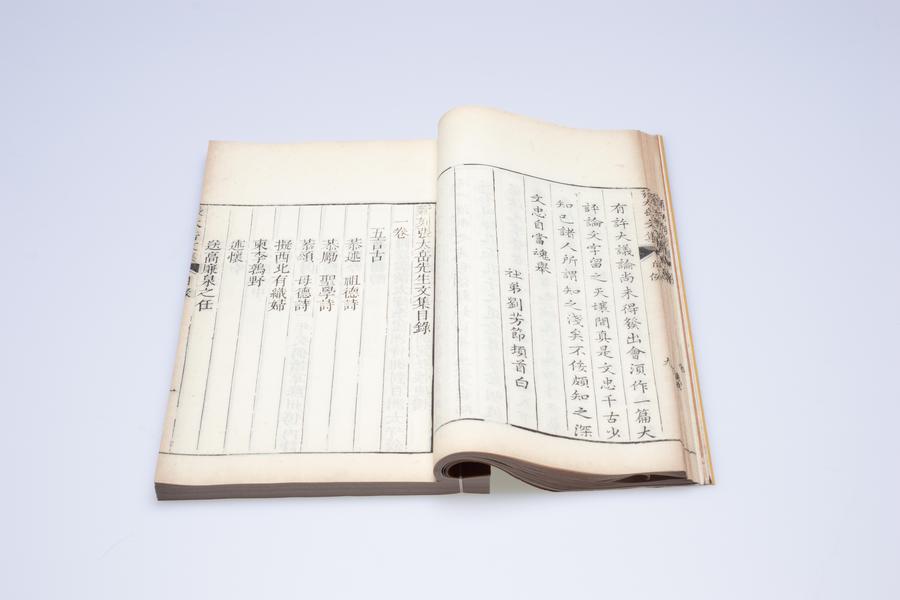 有許大議論尚未得發出會須作一篇大
評論文字留之天壤間真是文忠千古少
知己諸人所謂知之淺矣不佞頗知之深
文忠自當魂舉
社弟劉芳節頓首白
刻張太岳先生文集目錄
一卷
五言古
恭述 祖德詩
恭勵 聖學詩
恭頌 母德詩
擬西北有織婦
東李鶚野
述懷
送高廉泉之任